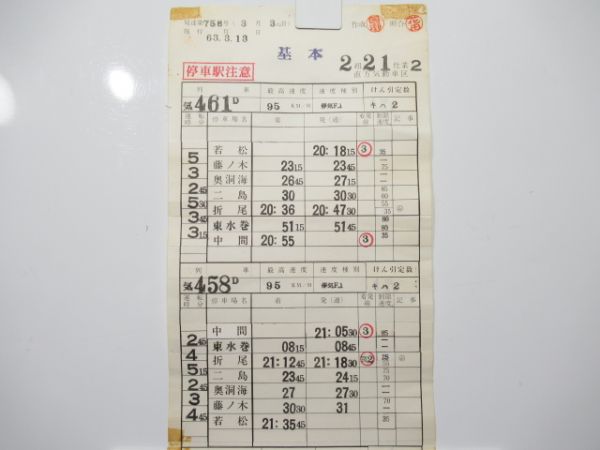 達第758号(3月3日)
63.3.13
基本
停車駅注意
2組21仕業2
直方気動車区
列車 最高速度 速度種別 けん引定数
気461D 95 KM/H 停気F1 キハ2
運転時分 停車場名 着 発(通) 着発線 制限速度 記事
若松 20:1815 ③ 35
5 藤ノ木 2315 2345
3 奥洞海 2645 2715
245 二島 30 3030
530 折尾 20:36 20:4730
345 東水巻 5115 5145
315 中間 20:55 ③
列車 最高速度 速度種別 けん引定数
気458D 95 KM/H 停気F1 キハ2
運転時分 停車場名 着 発(通) 着発線 制限速度 記事
中間 21:0530 ③
245 東水巻 0815 0845
4 折尾 21:1245 21:1830
515 二島 2345 2415
245 奥洞海 27 2730
3 藤ノ木 3030 31
445 若松 21:3545